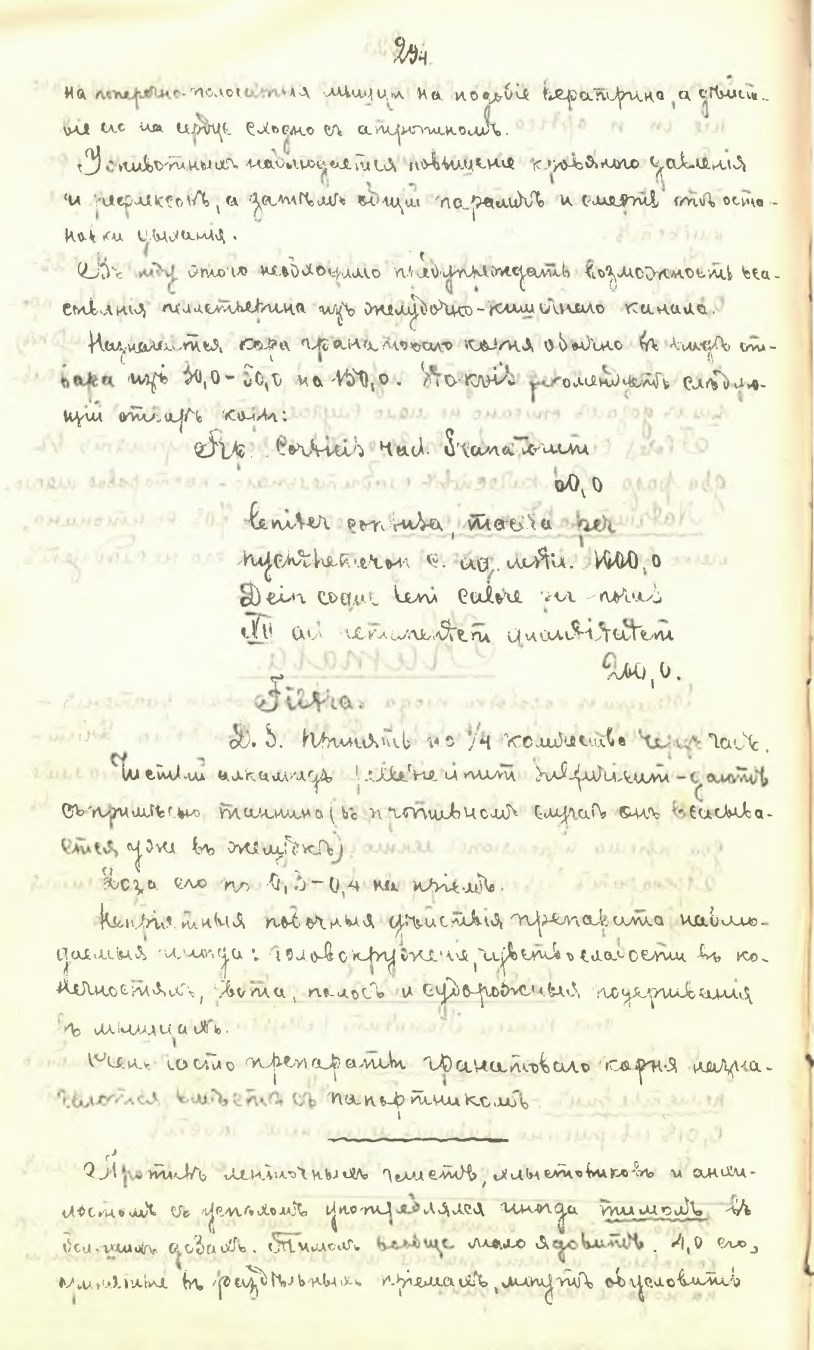 294.
на поперечно-полосатыя мышцы на подобіе вератрина, а дѣйст-
віе его на сердце сходно съ атропиномъ.
У животныхъ наблюдается повышеніе кровяного давленія
и рефлексовъ, а затѣмъ общій параличъ и смерть отъ оста-
новки дыханія.
Въ виду этого необходимо предупреждать возможность вса-
сыванія пеллетьерина изъ желудочно-кишечнаго канала.
Назначается кора гранатоваго корня обычно въ видѣ от-
вара изъ 30,0-50,0 на 150,0. рекомендуетъ слѣдую-
щій отваръ коры:
Rp. Corticis rad. Granatorum
60,0
leniter contusa, macera per
nychthemeron c. aq. destill. 1000,0
Dein coque leni calore per horas
XII ad remanentem quantitatem
200,0.
Filtra.
D. S. Принять по 1/4 количества черезъ часъ.
Чистый алкалоидъ pelletierinum sulfuricum - даютъ
съ примѣсью таннина (въ противномъ случаѣ онъ всасыва-
ется уже въ желудкѣ)
Доза его по 0,3-0,4 на пріемъ.
Непріятныя побочныя дѣйствія препарата наблю-
даемыя иногда: головокруженіе, чувство слабости въ ко-
нечностяхъ, рвота, поносъ и судорожныя подергиванія
въ мышцахъ.
Очень часто препараты гранатоваго корня назна-
чаются вмѣстѣ съ папортникомъ.
Противъ ленточныхъ глистъ, хлыстовиковъ и анки-
лостомъ съ успѣхомъ употреблялся иногда тимолъ въ
большихъ дозахъ. Тимолъ вообще мало ядовитъ. 4,0 его,
принятые въ раздѣльныхъ пріемахъ, могутъ обусловить